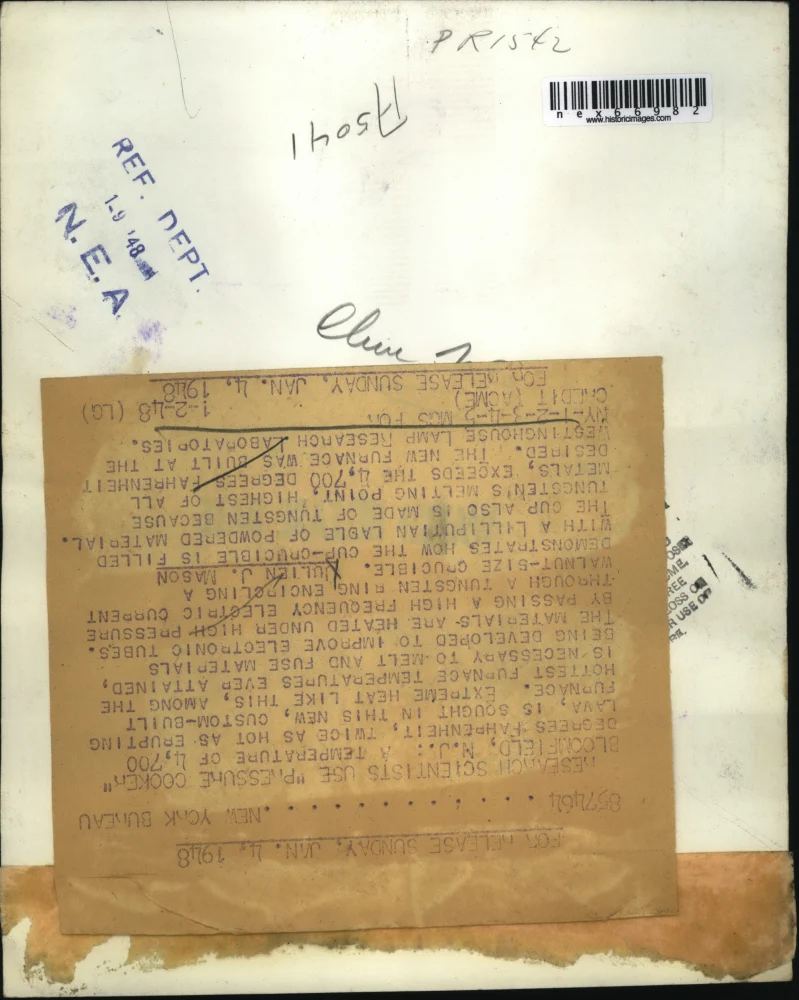 PR1542
nex66982
www.historicimages.com
A5041
REF. DEPT.
1-9 '48
N. E. A.
FOR RELEASE SUNDAY, JAN. 4, 1948
857464 . . . . . . . . . . . . NEW YORK BUREAU
RESEARCH SCIENTISTS USE "PRESSURE COOKER"
BLOOMFIELD, N.J.: A TEMPERATURE OF 4,700
DEGREES FAHRENHEIT, TWICE AS HOT AS ERUPTING
LAVA, IS SOUGHT IN THIS NEW, CUSTOM-BUILT
FURNACE. EXTREME HEAT LIKE THIS, AMONG THE
HOTTEST FURNACE TEMPERATURES EVER ATTAINED,
IS NECESSARY TO MELT AND FUSE MATERIALS
BEING DEVELOPED TO IMPROVE ELECTRONIC TUBES.
THE MATERIALS ARE HEATED UNDER HIGH PRESSURE
BY PASSING A HIGH FREQUENCY ELECTRIC CURRENT
THROUGH A TUNGSTEN RING ENCIRCLING A
WALNUT-SIZE CRUCIBLE. JULIEN J. MASON
DEMONSTRATES HOW THE CUP-CRUCIBLE IS FILLED
WITH A LILLIPUTIAN LADLE OF POWDERED MATERIAL.
THE CUP ALSO IS MADE OF TUNGSTEN BECAUSE
TUNGSTEN'S MELTING POINT, HIGHEST OF ALL
METALS, EXCEEDS THE 4,700 DEGREES FAHRENHEIT
DESIRED. THE NEW FURNACE WAS BUILT AT THE
WESTINGHOUSE LAMP RESEARCH LABORATORIES.
NY-1-2-3-4-5 MGS FOR
CREDIT (ACME) 1-2-48 (LG)
FOR RELEASE SUNDAY, JAN. 4, 1948